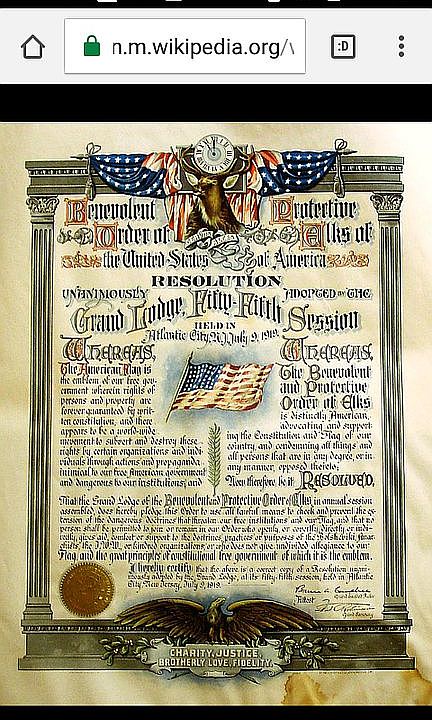 n.m.wikipedia.org/
:D
Benevolent Protective
Order of Elks of
the United States of America
RESOLUTION
UNANIMOUSLY ADOPTED BY THE
Grand Lodge, Fifty-Fifth Session
HELD IN
Atlantic City, N.J. July 9, 1919.
Whereas,
The American Flag is
the emblem of our free gov-
ernment wherein rights of
persons and property are
forever guaranteed by writ-
ten constitution, and there
appears to be a world-wide
movement to subvert and destroy these
rights by certain organizations and indi-
viduals through actions and propaganda
inimical to our free American government
and dangerous to our institutions; and
Whereas,
The Benevolent
and Protective
Order of Elks
is distinctly American,
advocating and support-
ing the Constitution and Flag of our
country and condemning all things and
all persons that are in any degree, or in
any manner, opposed thereto;
Now therefore, be it Resolved,
That the Grand Lodge of the Benevolent and Protective Order of Elks, in annual session
assembled, does hereby pledge this Order to use all lawful means to check and prevent the ex-
tension of the dangerous doctrines that threaten our free institutions and our Flag, and that no
person shall be permitted to join or remain in our Order who openly, or covertly, directly or indi-
rectly, gives aid, comfort or support to the doctrines, practices or purposes of the Bolsheviki, Anar-
chists, the I.W.W., or kindred organizations, or who does not give undivided allegiance to our
Flag and the great principles of constitutional free government of which it is the emblem.
I hereby certify that the above is a correct copy of a Resolution unani-
mously adopted by the Grand Lodge, at its fifty-fifth session, held in Atlantic
City, New Jersey, July 9, 1919.
Attest
Grand Exalted Ruler
Grand Secretary
CHARITY, JUSTICE,
BROTHERLY LOVE, FIDELITY.